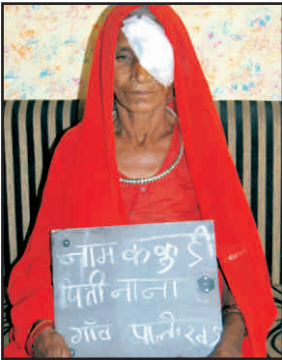 नाम कंकु डी
पिती नाना
गाँव पाली